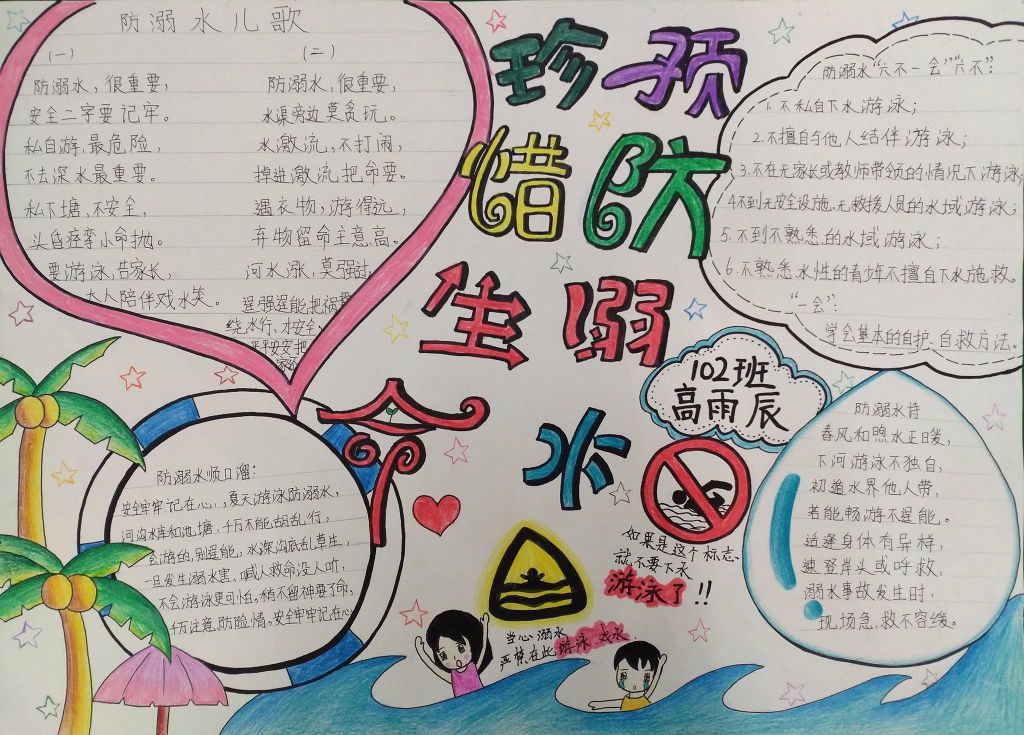 防溺水儿歌
（一）
防溺水，很重要，
安全二字要记牢。
私自游，最危险，
不去深水最重要。
私下塘，不安全，
头昏痉挛小命抛。
要游泳，告家长，
大人陪伴戏水笑。
（二）
防溺水，很重要，
水渠旁边莫贪玩。
水激流，不打闹，
掉进激流把命要。
遇衣物，游得远，
弃物留命主意高。
河水涨，莫强过，
逞强逞能把祸
绕水行，才安全，
平平安安把
家
珍惜生命
预防溺水
防溺水“六不一会”“六不”：
1.不私自下水游泳；
2.不擅自与他人结伴游泳；
3.不在无家长或教师带领的情况下游泳；
4.不到无安全设施、无救援人员的水域游泳；
5.不到不熟悉的水域游泳；
6.不熟悉水性的青少年不擅自下水施救。
“一会”：
学会基本的自护、自救方法。
102班
高雨辰
防溺水顺口溜：
安全牢牢记在心，夏天游泳防溺水，
河沟水库和池塘，千万不能胡乱行，
会游的，别逞能，水深沟底乱草生，
一旦发生溺水害，喊人救命没人听，
不会游泳更可怕，稍不留神要了命，
千万注意防险情，安全牢牢记在心
如果是这个标志
就不要下水
游泳了!!
当心溺水
严禁在此游泳戏水
防溺水诗
春风和煦水正暖，
下河游泳不独自，
初道水界他人带，
若能畅游不逞能。
适逢身体有异样，
速登岸头或呼救，
溺水事故发生时，
现场急救不容缓。